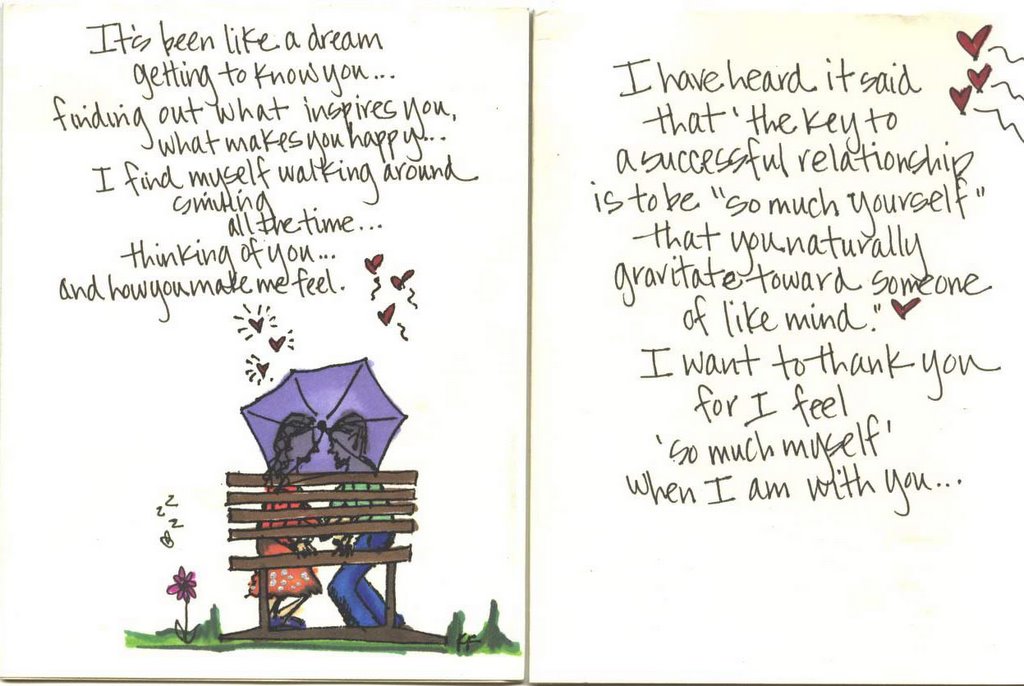 It's been like a dream
getting to know you...
finding out what inspires you,
what makes you happy...
I find myself walking around
smiling
all the time...
thinking of you...
and how you make me feel.
zz
z
FF
I have heard it said
that 'the key to
a successful relationship
is to be "so much yourself"
that you naturally
gravitate toward someone
of like mind."
I want to thank you
for I feel
'so much myself'
when I am with you...